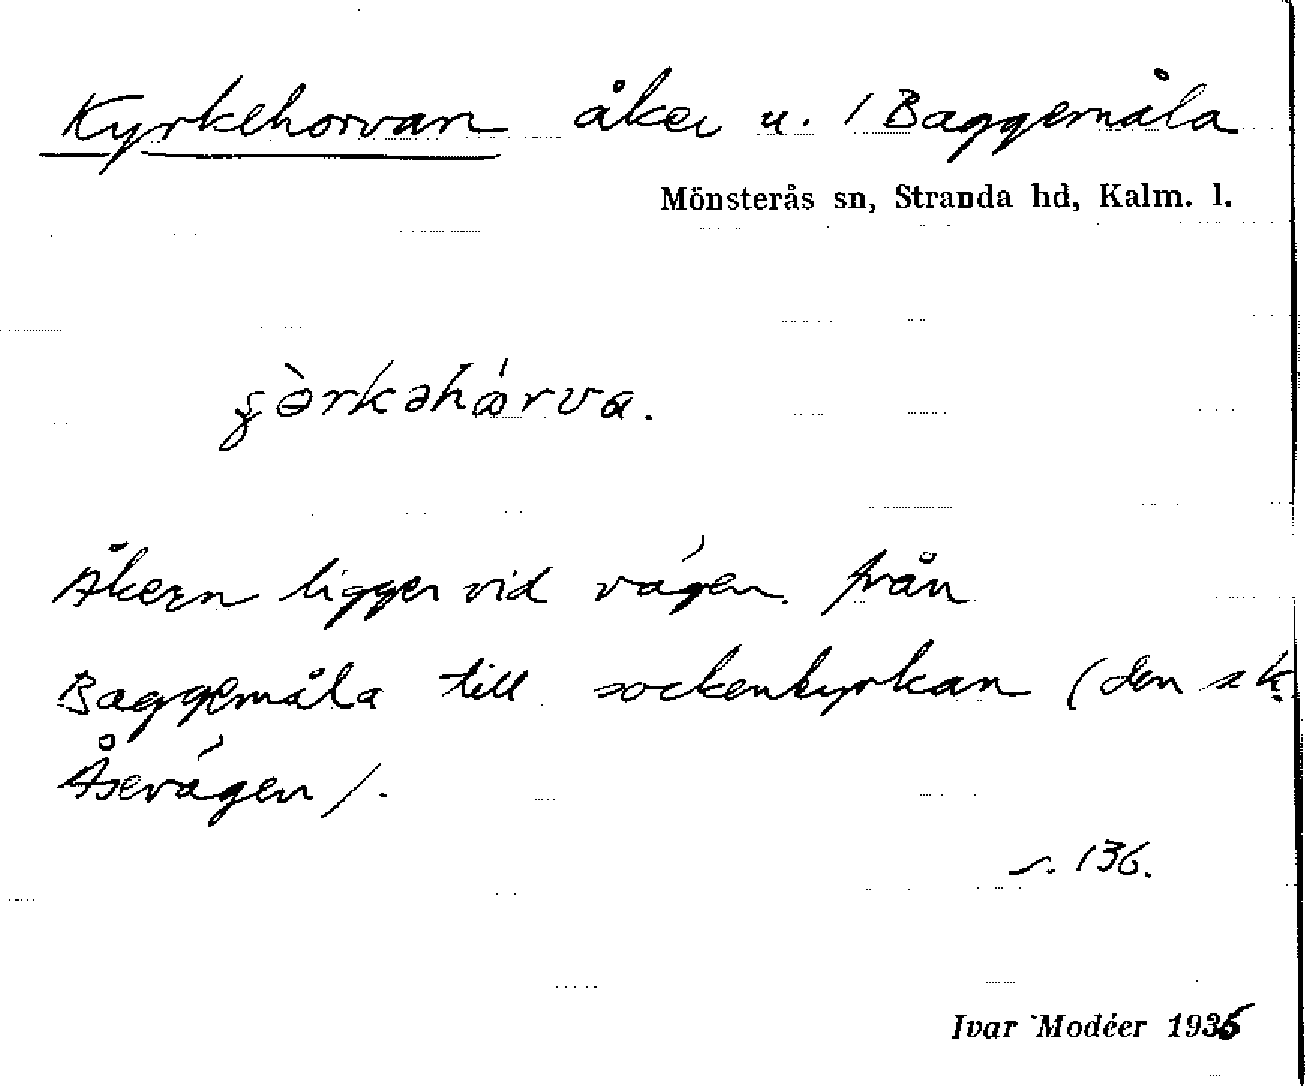 Kyrkehorvan åker u. 1 Baggemåla
Mönsterås sn, Stranda hd, Kalm. l.
Åkern ligger vid vägen från
Baggemåla till sockenkyrkan (den s k.
Åsevägen).
s. 136.
Ivar Modéer 1936